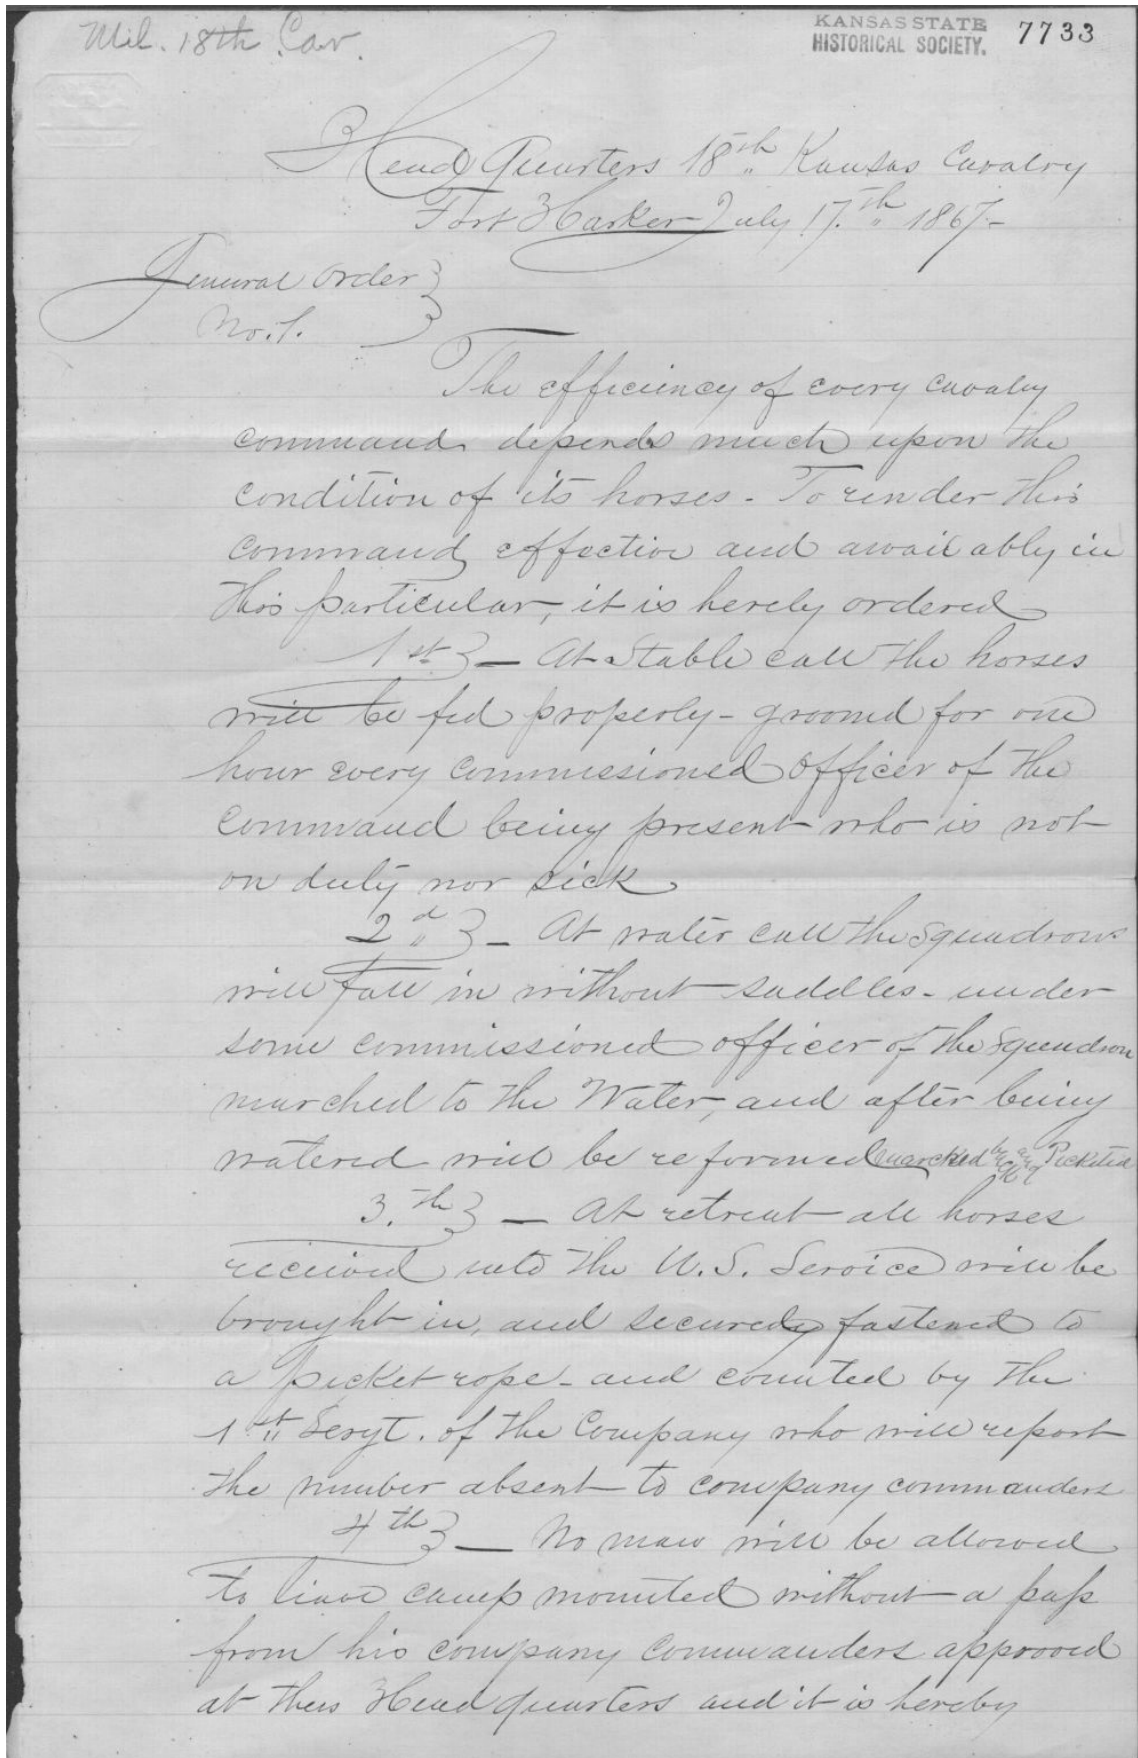 Mil. 18th Cav.
KANSAS STATE
HISTORICAL SOCIETY.
7733
Head Quarters 18th Kansas Cavalry
Fort Harker July 17.th 1867-
General Order }
No. 1. }
The efficiency of every cavalry
command depends much upon the
condition of its horses - To render this
command effective and availably in
this particular, it is hereby ordered
1st } - At Stable call the horses
will be fed properly - groomed for one
hour every commissioned officer of the
command being present who is not
on duty nor sick
2d } - At water call the Squadrons
will fall in without saddles - under
some commissioned officer of the Squadron
marched to the Water, and after being
watered will be reformed marched back and Picketed
3.th } - At retreat all horses
received into the U.S. Service will be
brought in, and securedy fastened to
a picket rope - and counted by the
1st Sergt. of the Company who will report
the number absent to company commanders
4th } - No man will be allowed
to leave camp mounted without a pass
from his company commanders approved
at these Head quarters and it is hereby